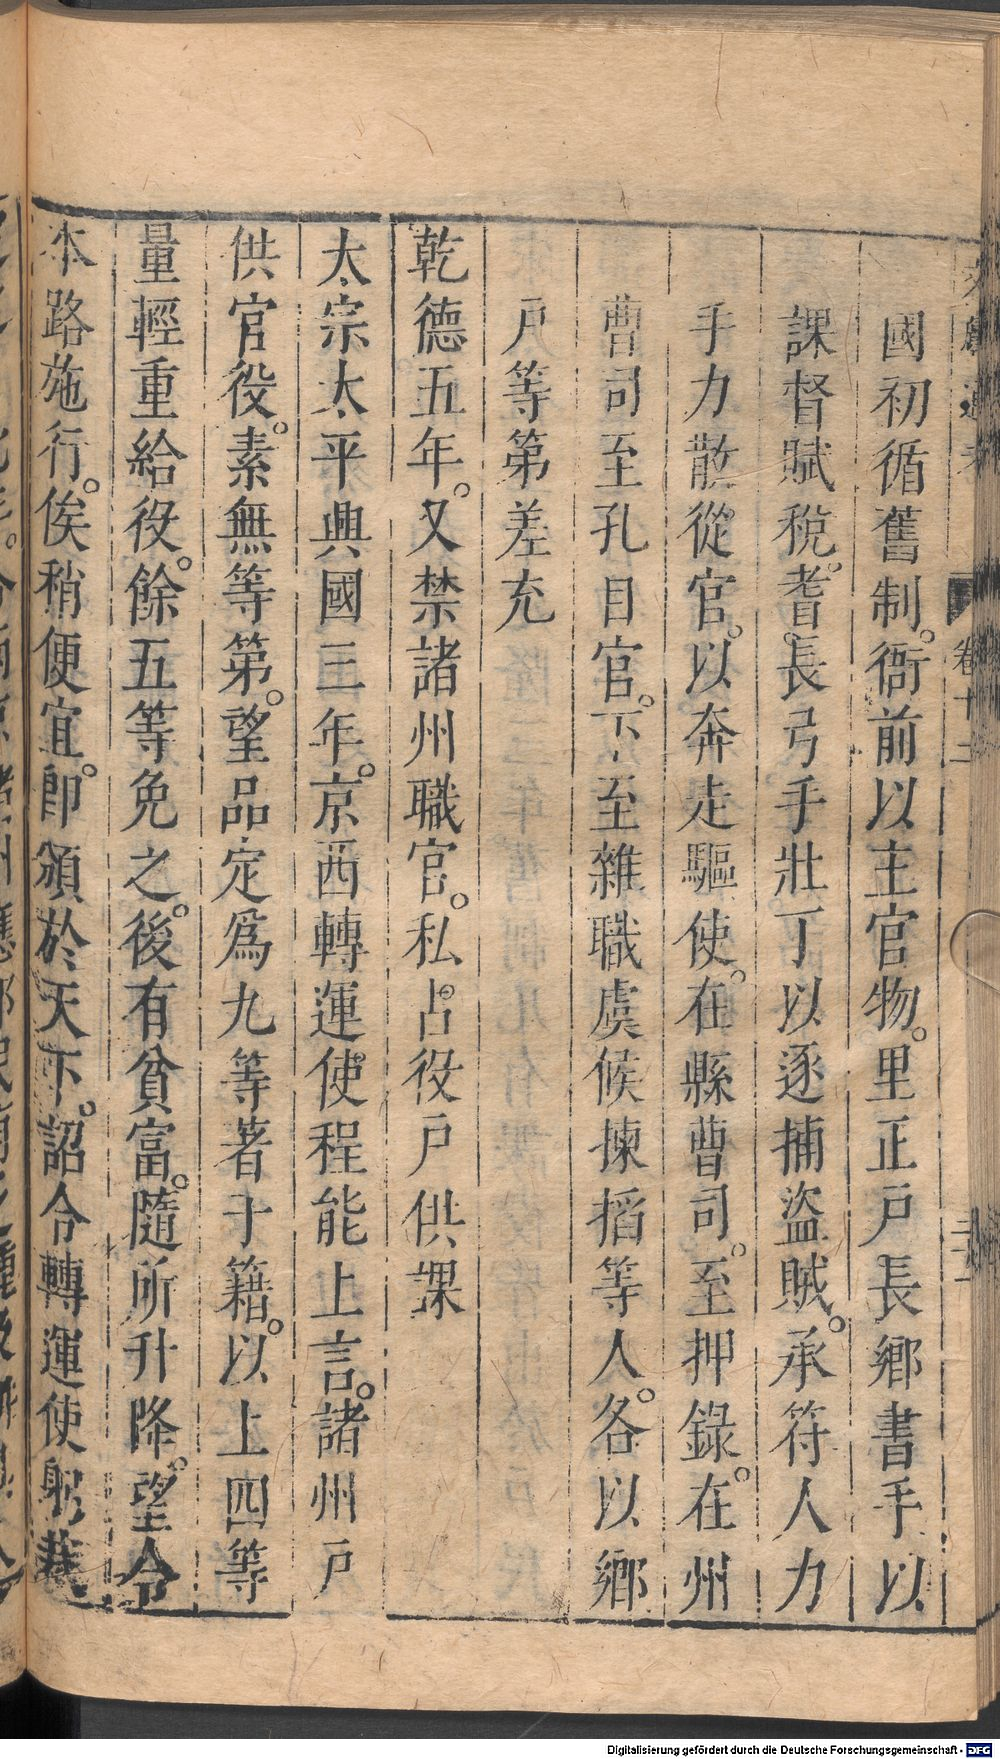 文獻通考 卷十二
國初循舊制。衙前以主官物。里正戶長鄉書手以
課督賦稅。耆長弓手壯丁以逐捕盜賊。承符人力
手力散從官。以奔走驅使。在縣曹司。至押錄。在州
曹司至孔目官。下至雜職虞候揀搯等人。各以鄉
戶等第差充
乾德五年。又禁諸州職官。私占役戶供課
太宗太平興國三年。京西轉運使程能上言。諸州戶
供官役。素無等第。望品定爲九等著于籍。以上四等
量輕重給役。餘五等免之。後有貧富。隨所升降。望令
本路施行。俟稍便宜。即頒於天下。詔令轉運使躬裁
Digitalisierung gefördert durch die Deutsche Forschungsgemeinschaft - DFG